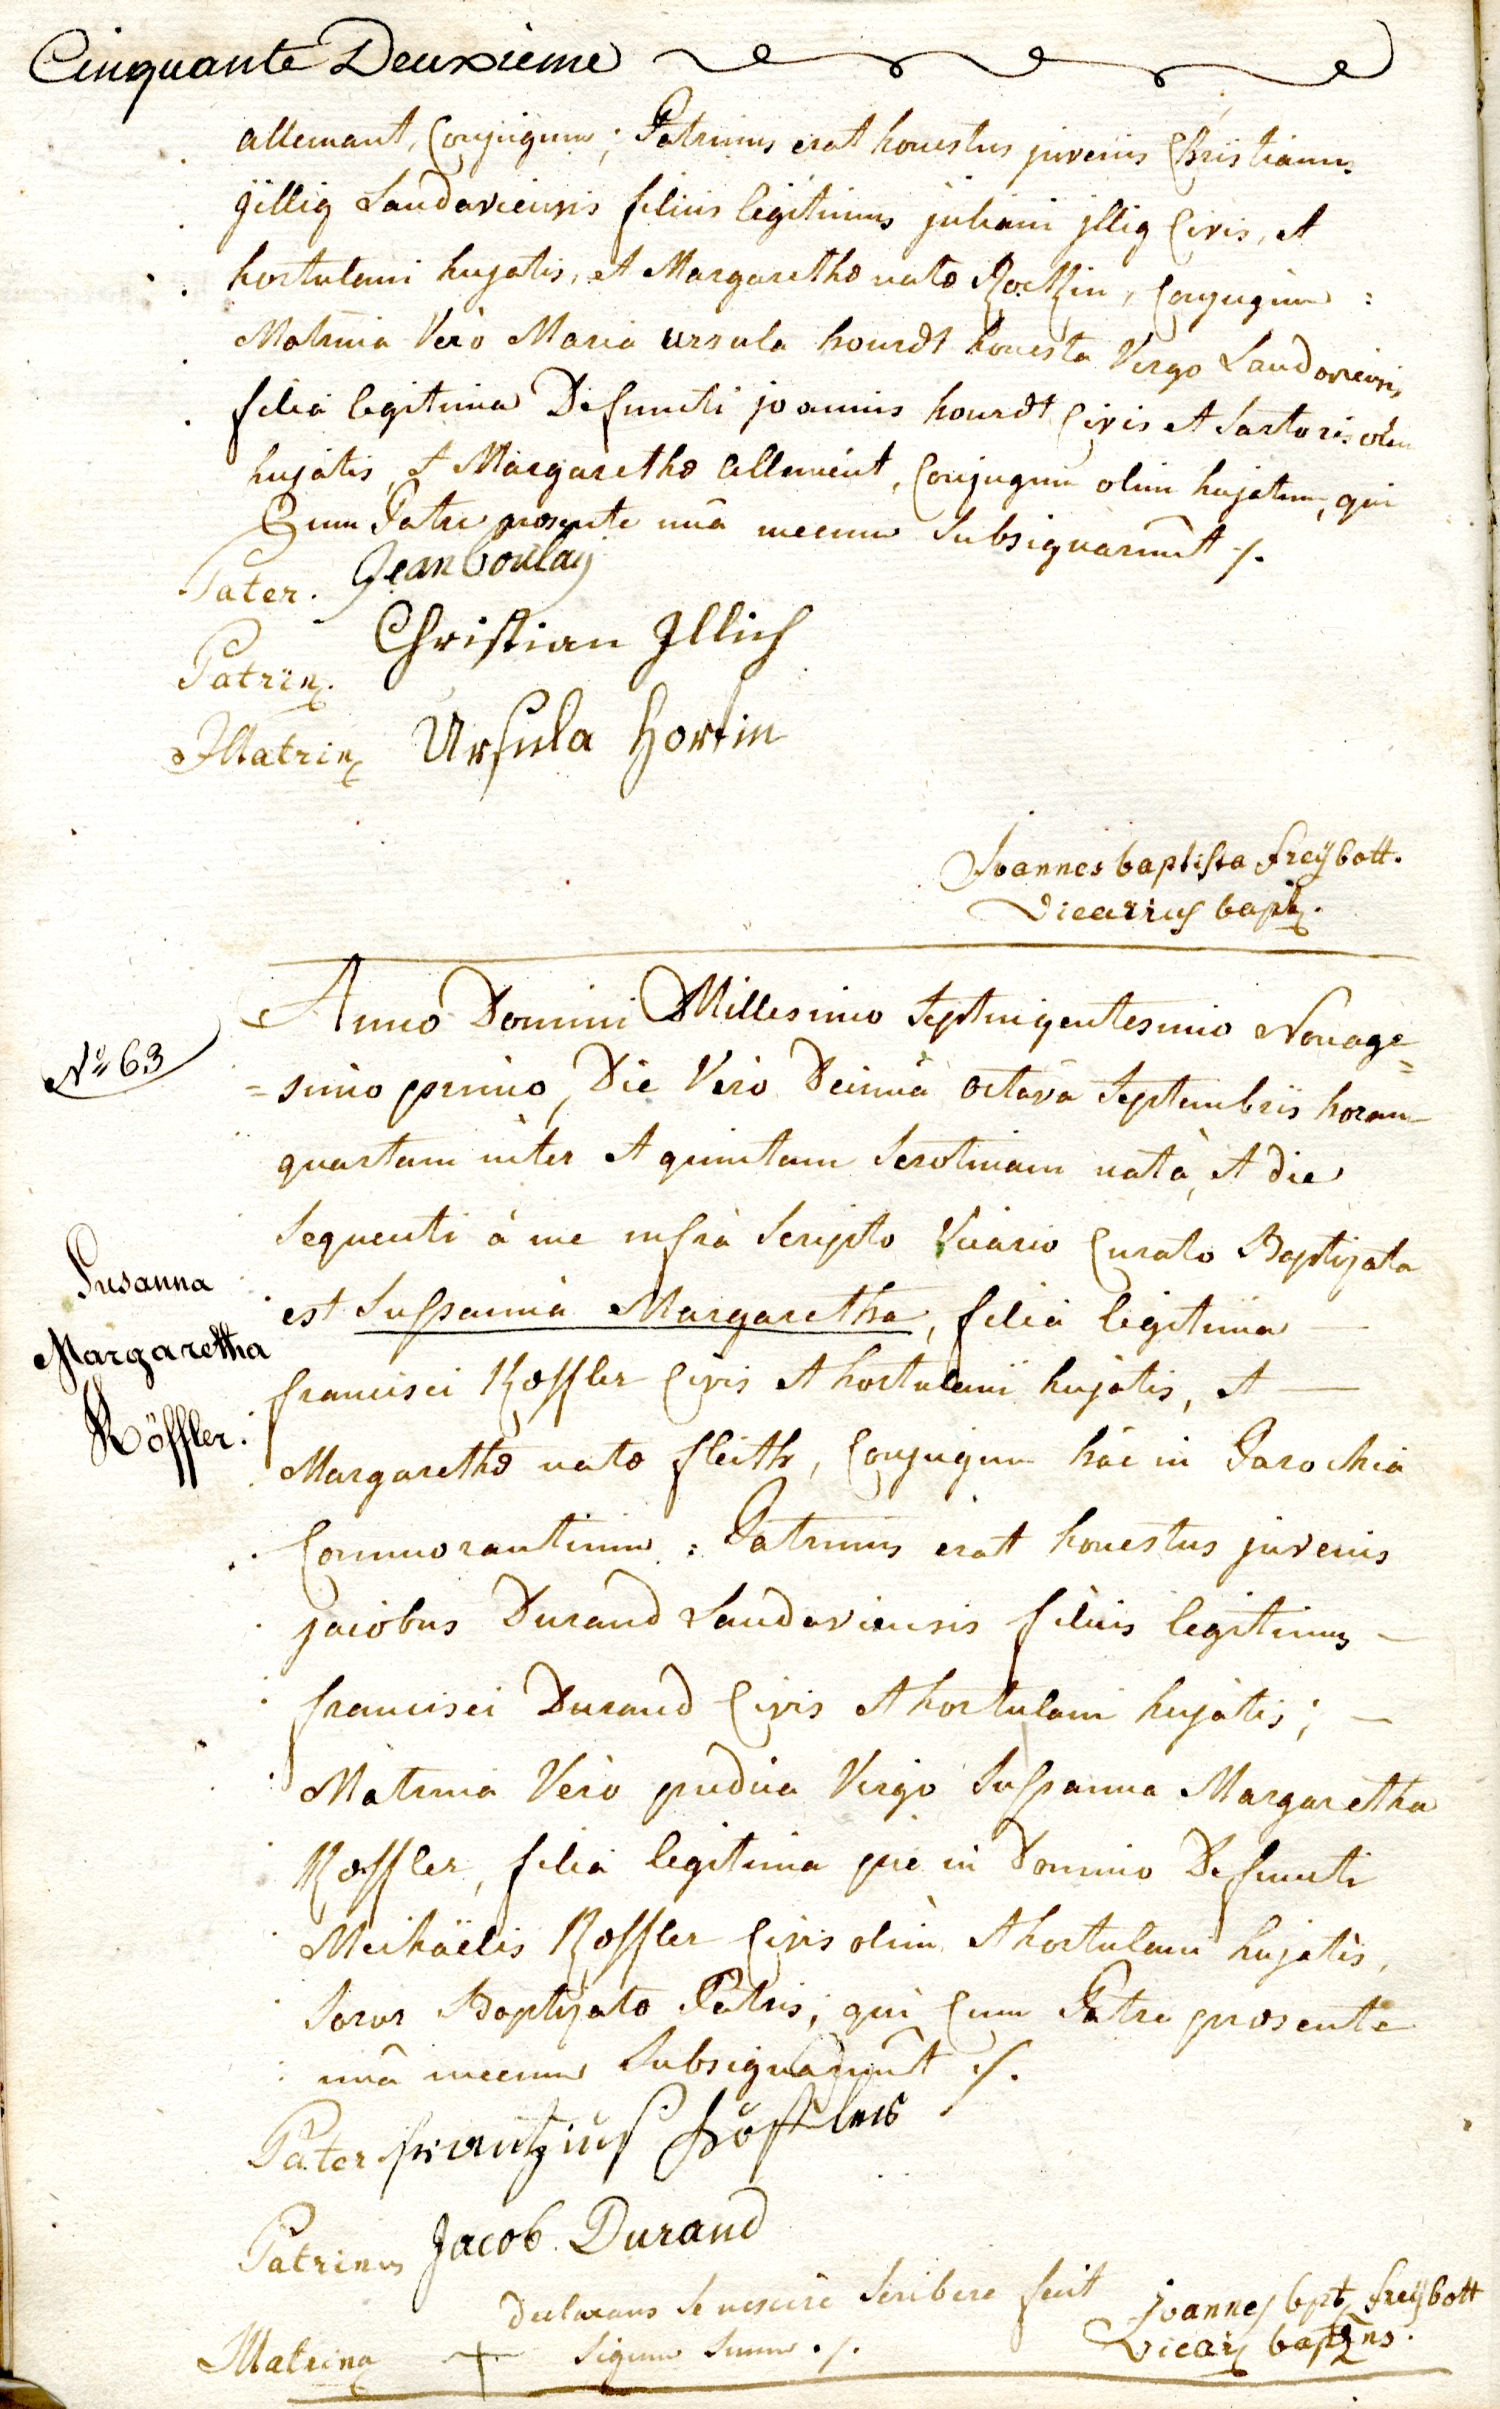 Cinquante Deuxieme
allemant, Conjugum; Patrinus erat honestus juvenis Christianus
jillig Landaviensis filius legitimus juliani jllig Civis, et
hortulani hujatis, et Margarethæ natæ, Conjugum :
Matrina Verò Maria ursula hourdt honesta Virgo Landaviensis,
filia legitima Defuncti joannis hourdt Civis et Sartoris olim
hujatis, et Margarethæ allemént, Conjugum olim hujatum, qui
Cum Patre præsente unâ mecum Subsignarunt ./.
Pater. Jean boulay
Christian Jllich
Patrin.
Matrin Ursula Hortin
Joannes baptista freÿbott.
Vicarius bapt.
Nº 63
Anno Domini Millesimo Septingentesimo Nonage=
=simo primo, Die Vero Decima octava Septembris horam
quartam inter et quintam Serotinam nata, et die
Sequenti à me infrà Scripto Vicario Curato Baptizata
Susanna
est Sussanna Margaretha, filia legitima —
Margaretha
francisci Köffler Civis et hortulani hujatis, et —
Röffler.
Margarethæ natæ fleith, Conjugum hâc in Parochia
Commorantium : Patrinus erat honestus juvenis
jacobus Durand Landaviensis filius legitimus —
francisci Durand Civis et hortulani hujatis; —
Matrina Verò pudica Virgo Sussanna Margaretha
Köffler, filia legitima piè in Domino Defuncti
Michaëlis Köffler Civis olim et hortulani hujatis,
Soror Baptizatæ Patris; qui Cum Patre præsente
unâ mecum Subsignarunt ./.
Pater frantzius Köffler
Patrinus Jacob Durand
Declarans Se nescire Scribere fecit
Matrina + Signum Suum ./.
Joannes bpt freÿbott
Vicar bapt ns.